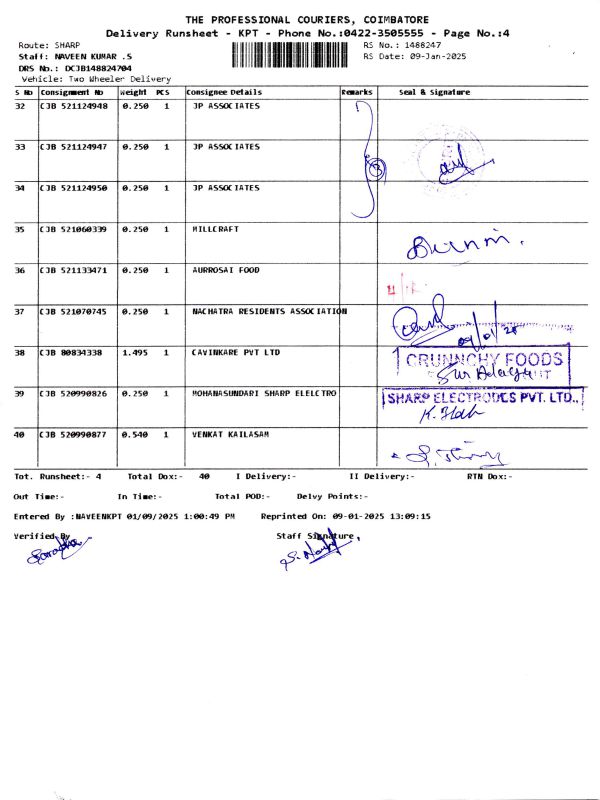 THE PROFESSIONAL COURIERS, COIMBATORE
Delivery Runsheet - KPT - Phone No.:0422-3505555 - Page No.:4
Route: SHARP RS No.: 1488247
Staff: NAVEEN KUMAR .S RS Date: 09-Jan-2025
DRS No.: DCJB148824704
Vehicle: Two Wheeler Delivery
S No Consignment No Weight PCS Consignee Details Remarks Seal & Signature
32 CJB 521124948 0.250 1 JP ASSOCIATES
33 CJB 521124947 0.250 1 JP ASSOCIATES
3
34 CJB 521124950 0.250 1 JP ASSOCIATES
35 CJB 521060339 0.250 1 MILLCRAFT
36 CJB 521133471 0.250 1 AURROSAI FOOD
37 CJB 521070745 0.250 1 NACHATRA RESIDENTS ASSOCIATION
09/01/25
38 CJB 80834338 1.495 1 CAVINKARE PVT LTD
CRUNNCHY FOODS
39 CJB 520990826 0.250 1 MOHANASUNDARI SHARP ELELCTRO
SHARP ELECTRODES PVT. LTD.,
40 CJB 520990877 0.540 1 VENKAT KAILASAM
Tot. Runsheet:- 4 Total Dox:- 40 I Delivery:- II Delivery:- RTN Dox:-
Out Time:- In Time:- Total POD:- Delvy Points:-
Entered By :NAVEENKPT 01/09/2025 1:00:49 PM Reprinted On: 09-01-2025 13:09:15
Verified By Staff Signature